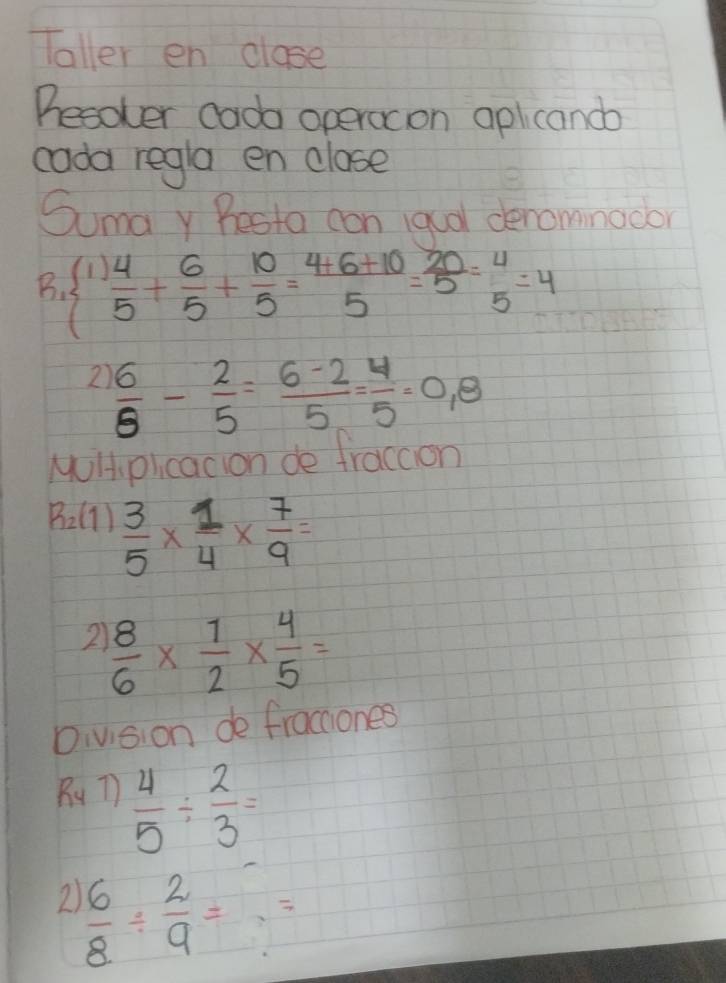 Taller en clase
Resolver cada operacon aplicando
cada regla en clase
Suma y Resta con igual denominador
R₁{(1) 4/5 + 6/5 + 10/5 = 4+6+10/5 = 20/5 = 4/5 = 4
2) 6/5 - 2/5 = 6-2/5 = 4/5 = 0,8
Multiplicacion de fraccion
R₂(1) 3/5 x 1/4 x 7/9 =
2) 8/6 x 1/2 x 4/5 =
Division de fracciones
R4 1) 4/5 ÷ 2/3 =
2) 6/8 ÷ 2/9 = =